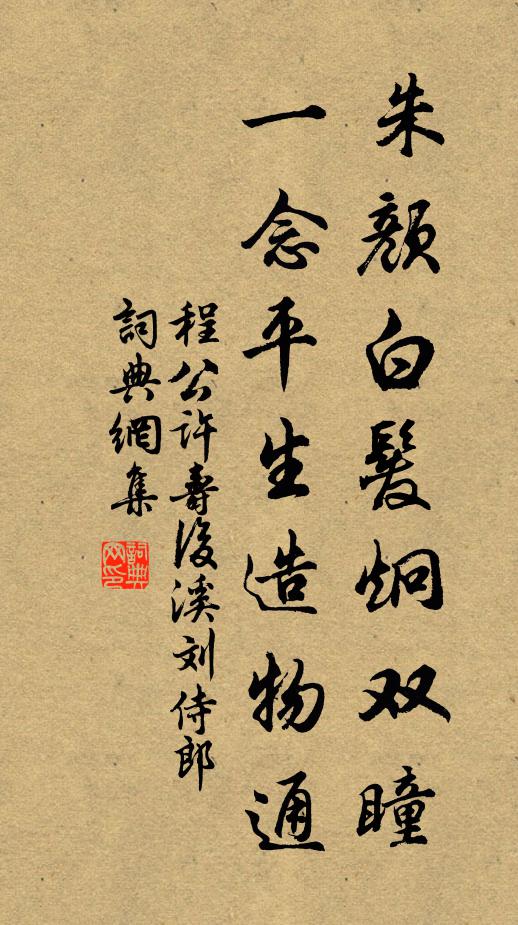 朱颜白髮炯双瞳
一念平生造物通
程公许壽後溪刘侍郎
詞典網集
詞典網印